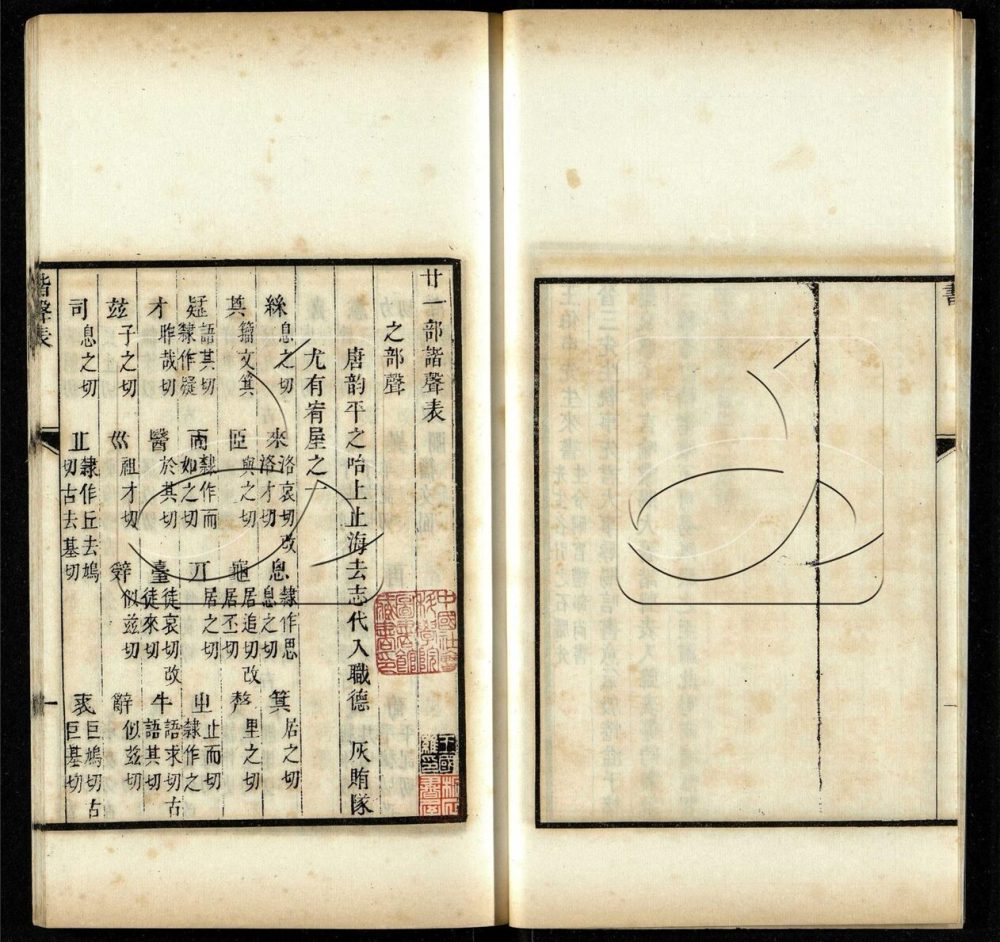 廿一部諧聲表
之部聲
唐韵平之咍上止海去志代入職德 灰賄隊
尤有宥屋之一
絲息之切 來洛哀切改洛才切 恖隸作思息之切 箕居之切
其籀文箕 𦣝與之切 龜居追切改居丕切 𠩺里之切
語其切隸作疑 而隸作而如之切 丌居之切 㞢止而切隸作之
才昨哉切 醫於其切 臺徒哀切改徒來切 牛語求切古語其切
兹子之切 祖才切 辤似兹切 辭似兹切
司息之切 丠隸作丘去鳩切古去基切 裘巨鳩切古巨基切
諧聲表 一